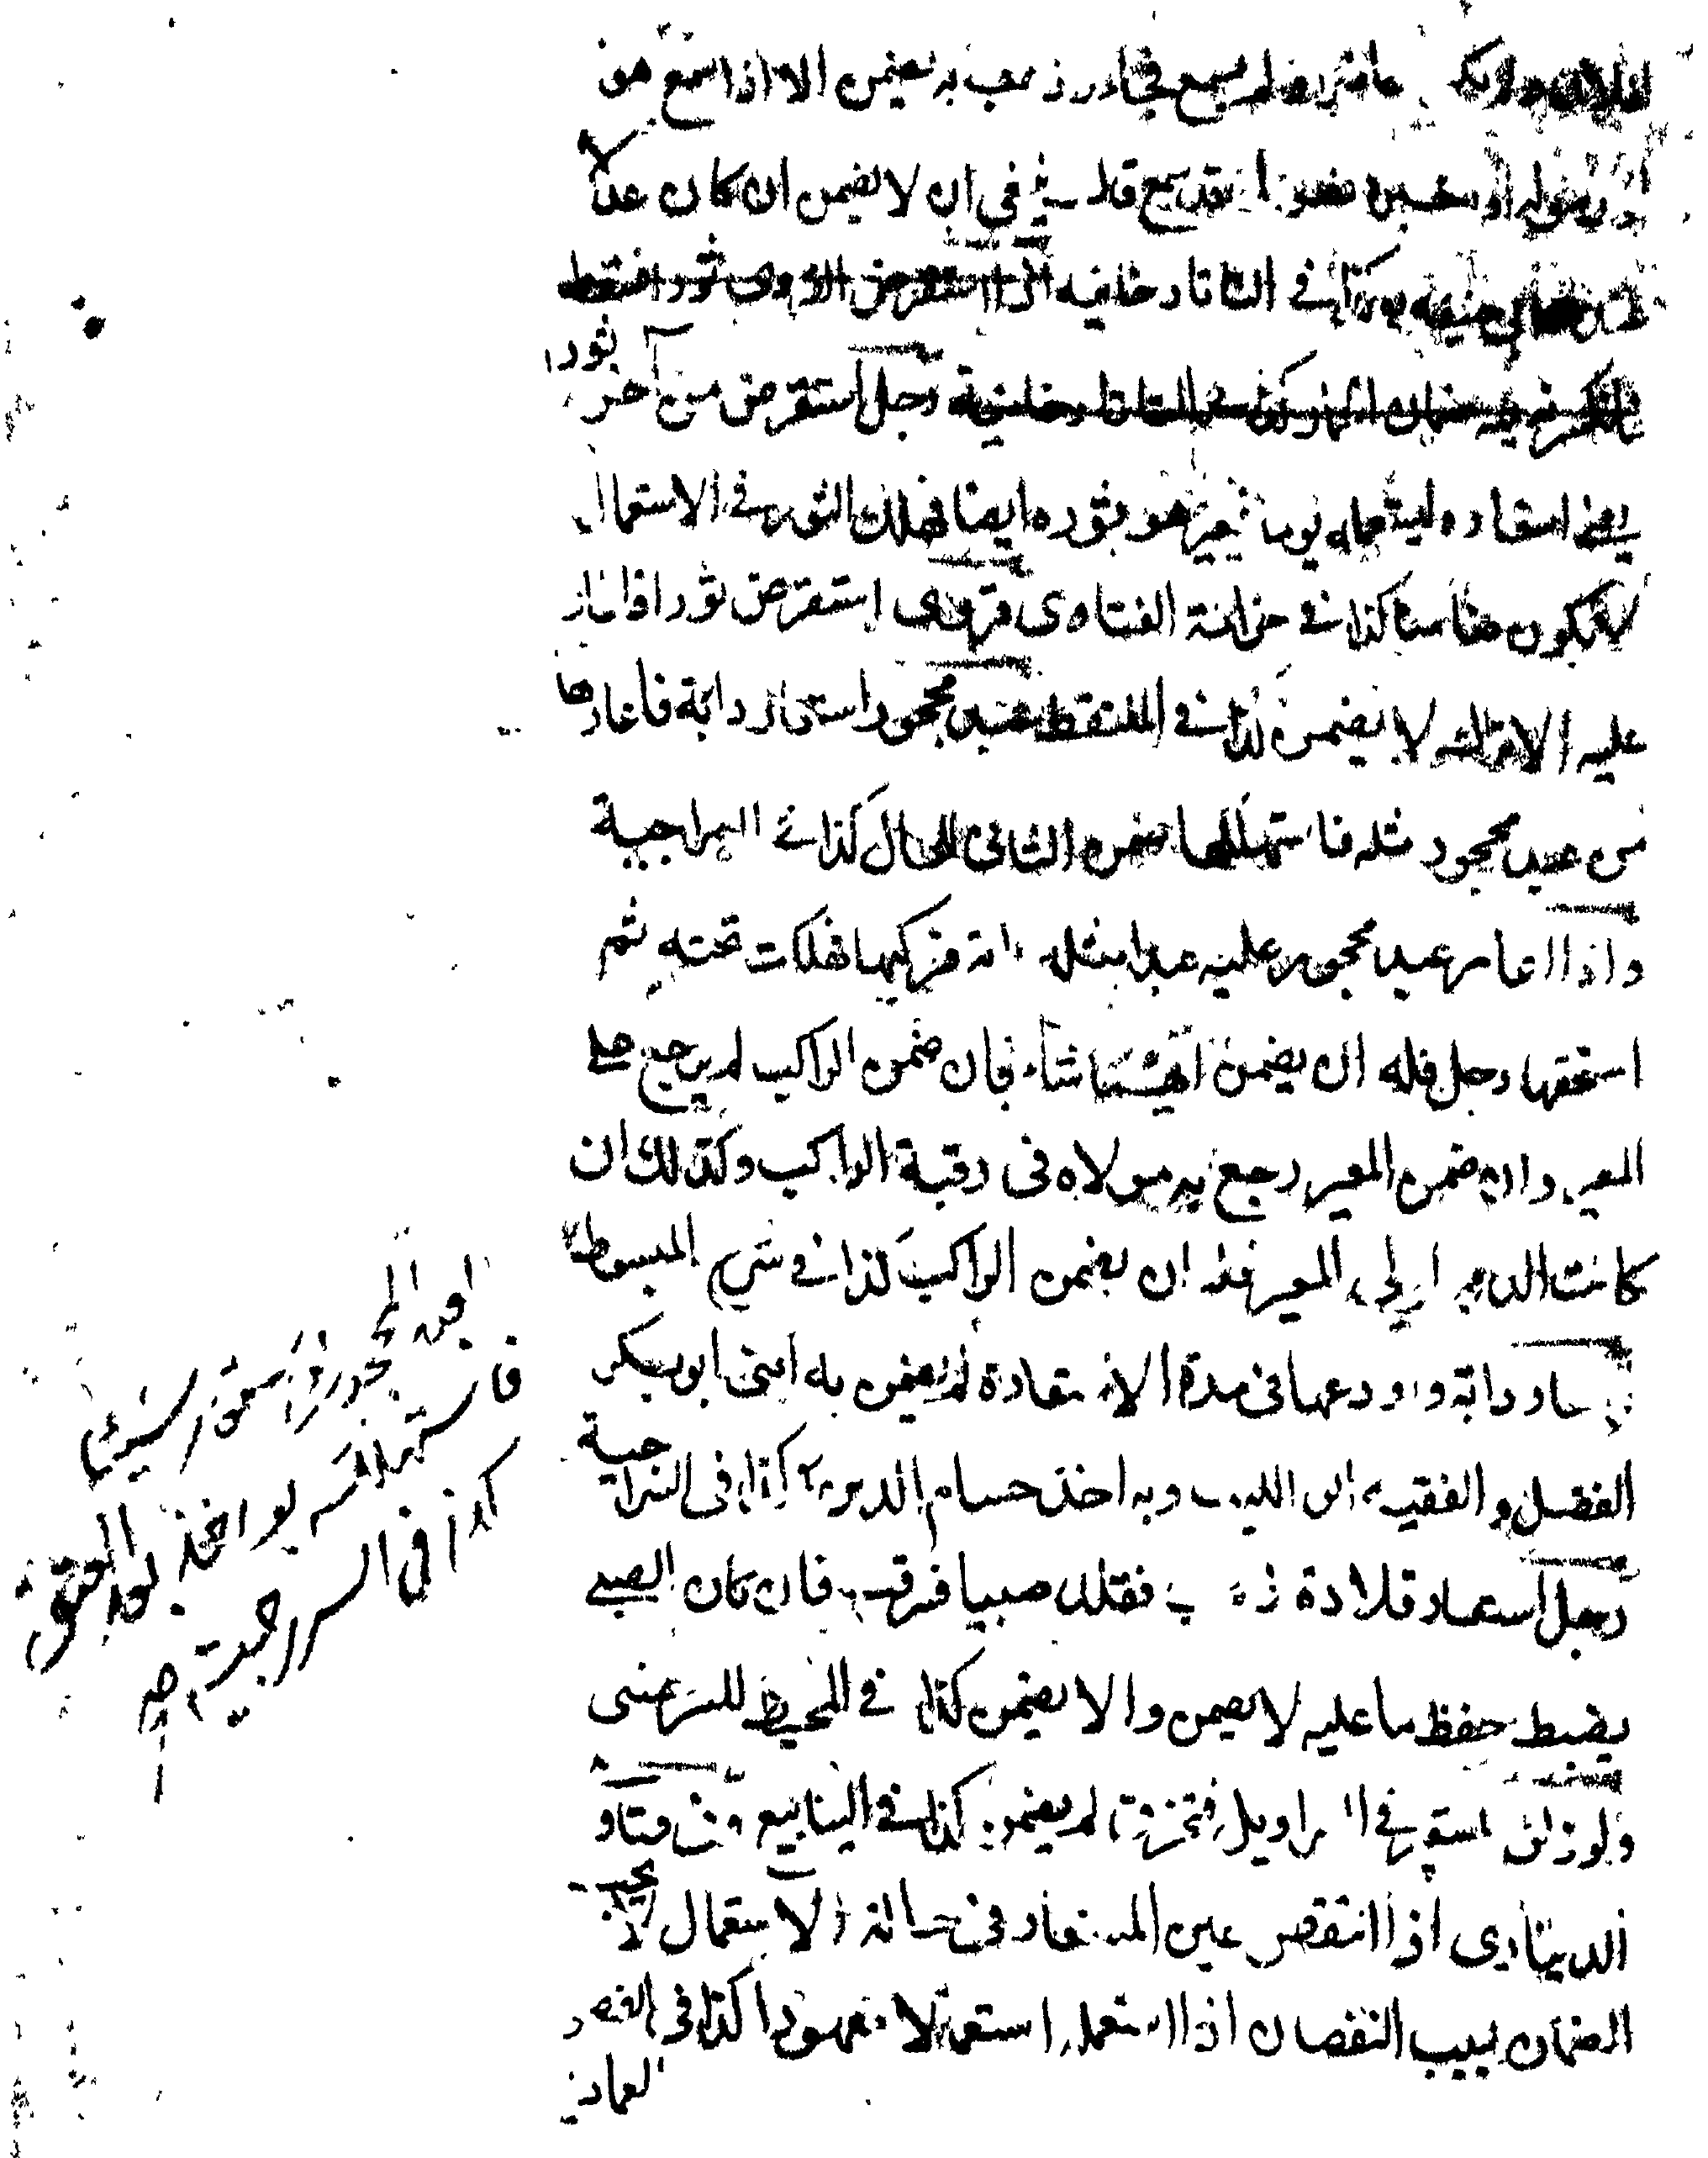 فلم يسمع فجاء و ذهب به يضمن الا اذا سمع هو
او رسوله او فقد سمع قال في ان لا يضمن ان كان عدلا
كذا في التاتارخانيه استقرض ثورا فقط
كذا في التاتارخانية رجل استقرض من آخر ثورا
يعني استعاره ليستعمله يوما هو ثوره ايضا فهلك الثور في الاستعمال
لا يكون ضامنا كذا في خزانة الفتاوى قروى استقرض ثورا فاغار
عليه الاتراك لا يضمن كذا في الملتقط عبد محجور استعار دابة فاعارها
من عبد محجور مثله فاستهلكها ضمن الثاني للحال كذا في السراجية
واذا اعار عبد محجور عليه عبدا مثله دابة فركبها فهلكت تحته ثم
استحقها رجل فله ان يضمن ايهما شاء فان ضمن الراكب لم يرجع على
المعير وان ضمن المعير رجع به مولاه في رقبة الراكب وكذلك ان
كانت الدابة لمولى المعير فله ان يضمن الراكب كذا في شرح المبسوط
استعار دابة واودعها في مدة الاستعارة لم يضمن به افتى ابو بكر
الفضل والفقيه ابو الليث وبه اخذ حسام الدين كذا في السراجية
رجل استعار قلادة ذهب فقلد صبيا فسرقت فان كان الصبي
يضبط حفظ ما عليه لا يضمن والا يضمن كذا في المحيط للسرخسي
ولو زلق المستعير في السراويل فتخرقت لم يضمن كذا في الينابيع وفي فتاو
الديناري اذا انتقص عين المستعار في حالة الاستعمال لا يجب
الضمان بسبب النقصان اذا استعمله استعمالا معهودا كذا في الفصول
العمادية
العبد المحجور اذا استقرض شيئا
فاستهلكه يواخذ بعد العتق
كذا في السراجية اهـ